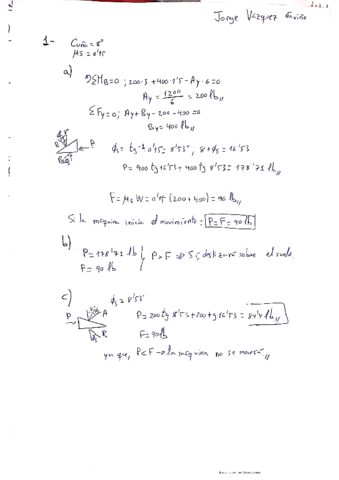 Jorge Vázquez
1- Cuña = 8°
μs = 0'15
a) ΣM_B = 0 ; 200·3 + 400·1'5 - Ay·6 = 0
Ay = 1200/6 = 200 lb //
ΣFy = 0 ; Ay + By - 200 - 400 = 0
By = 400 lb //
P
ϕs = tg⁻¹ 0'15 = 8'53° ; 8 + ϕs = 16'53
P = 400 tg 16'53 + 400 tg 8'53 = 178'71 lb //
F = μs W = 0'15 (200 + 400) = 90 lb //
Si la máquina inicia el movimiento: P = F = 90 lb
b) P = 178'71 lb
F = 90 lb
, P > F => Sí, deslizará sobre el suelo
c) ϕs = 8'53°
P A
R
P = 200 tg 8'53 + 200 tg 16'53 = 84'4 lb //
F = 90 lb
ya que, P < F → la máquina no se moverá //